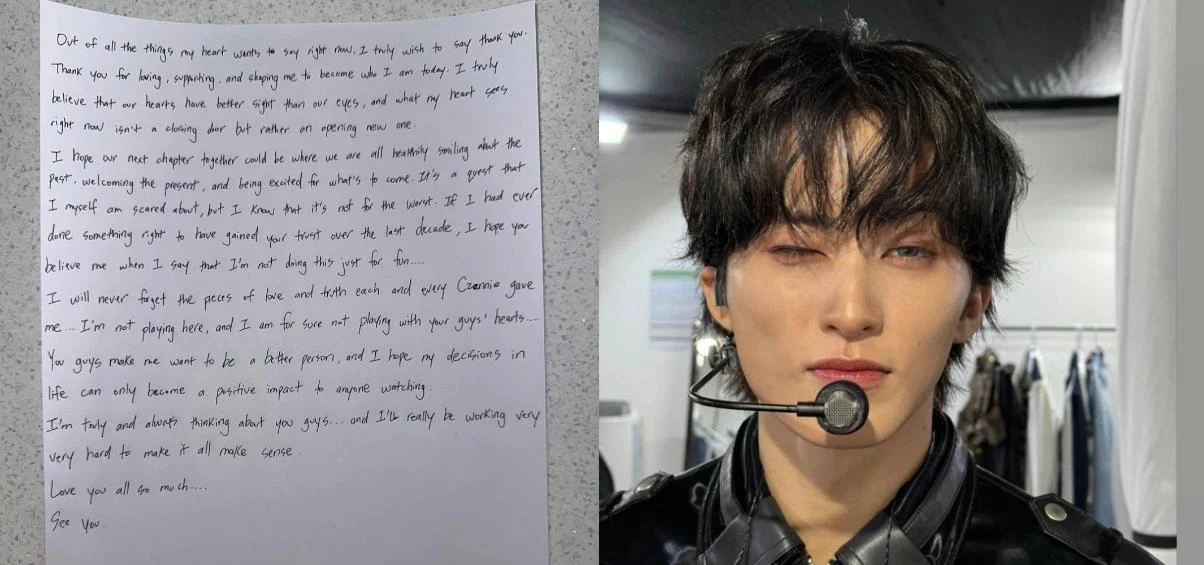 Out of all the things my heart wants to say right now, I truly wish to say thank you.
Thank you for loving, supporting, and shaping me to become who I am today. I truly
believe that our hearts have better sight than our eyes, and what my heart sees
right now isn't a closing door but rather an opening new one.
I hope our next chapter together could be where we are all healthily smiling about the
past, welcoming the present, and being excited for what's to come. It's a quest that
I myself am scared about, but I know that it's not for the worst. If I had ever
done something right to have gained your trust over the last decade, I hope you
believe me when I say that I'm not doing this just for fun....
I will never forget the peces of love and truth each and every Czennie gave
me... I'm not playing here, and I am for sure not playing with your guys' hearts....
You guys make me want to be a better person, and I hope my decisions in
life can only become a positive impact to anyone watching.
I'm truly and always thinking about you guys... and I'll really be working very
very hard to make it all make sense.
Love you all so much....
See you.